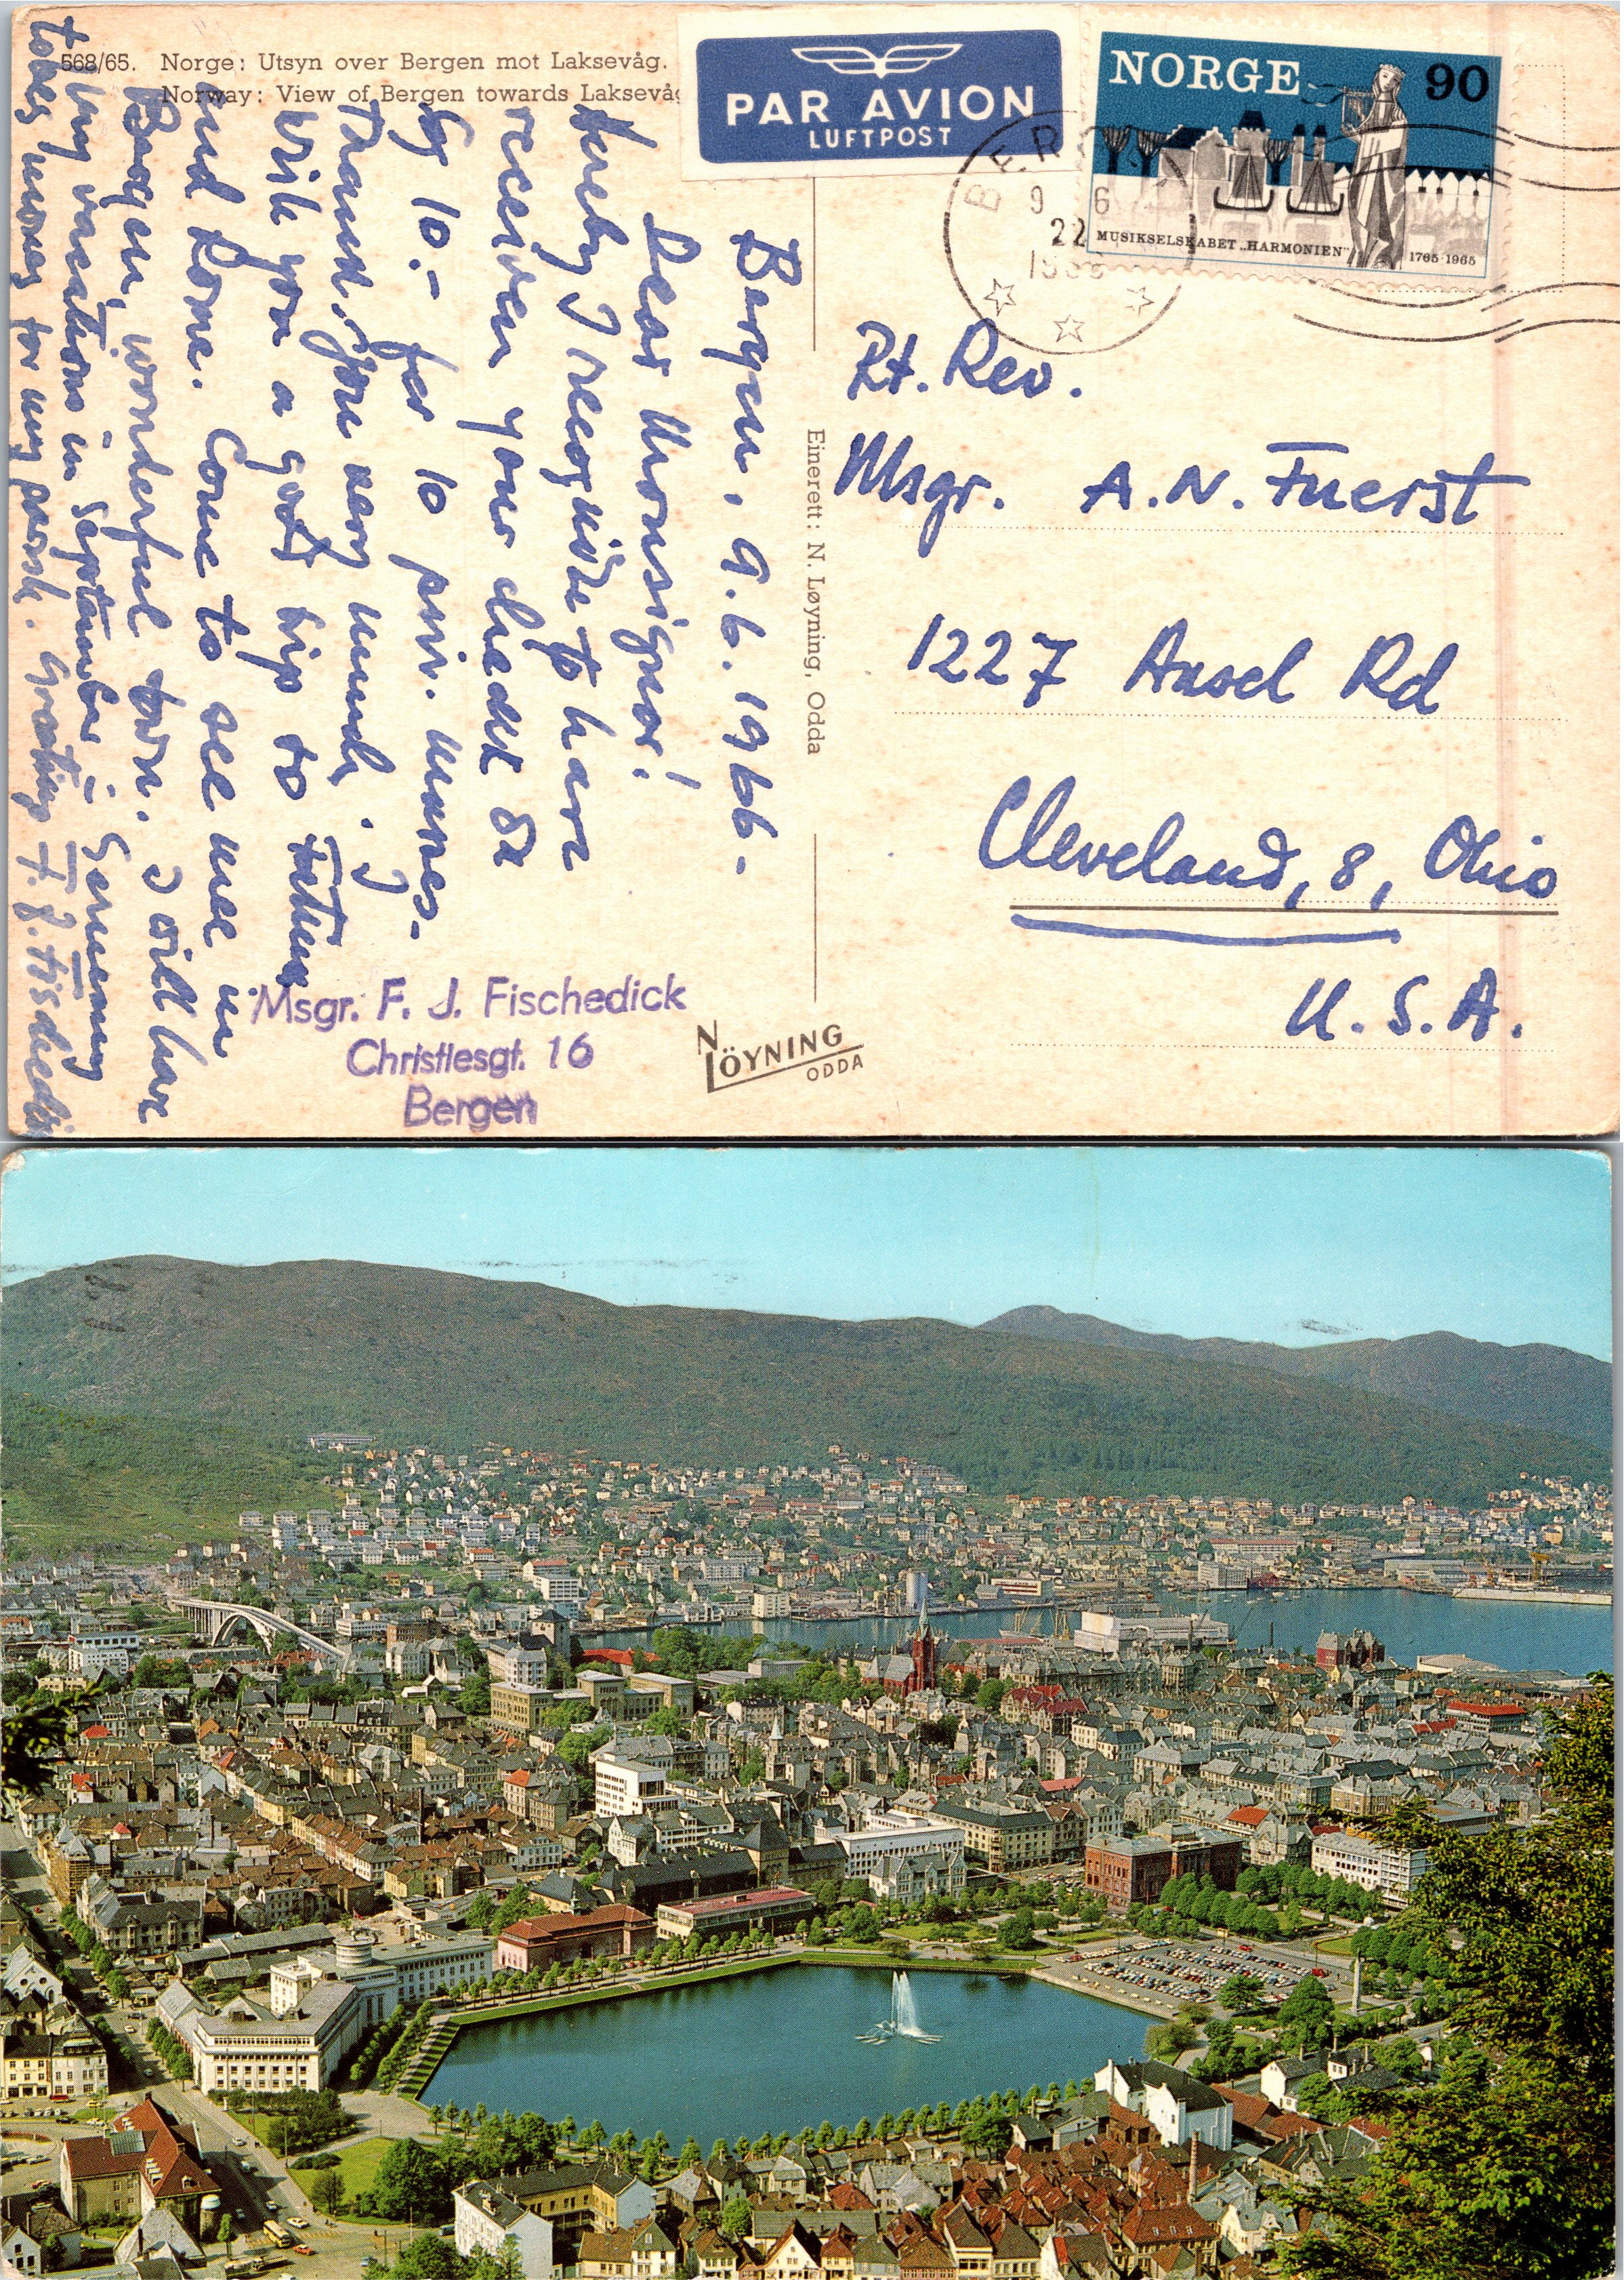 568/65. Norge: Utsyn over Bergen mot Laksevåg.
Norway: View of Bergen towards Laksevåg
PAR AVION
LUFTPOST
NORGE 90
MUSIKSELSKABET „HARMONIEN" 1765-1965
BER
9 6
22
19
Bergen, 9.6.1966-
Dear Monsignor!
Hereby I recognize to have
received your check of
$ 10.- for 10 priv. masses.
Thank you very much. I
wish you a good trip to
and Rome. Come to see me in
Bergen, wonderful town. I will have
my vacations in September in Germany
to for my parish. Greetings F. J. Fischedick
Msgr. F. J. Fischedick
Christiesgt. 16
Bergen
Einerett: N. Løyning, Odda
N LÖYNING
ODDA
Rt. Rev.
Msgr. A. N. Fuerst
1227 Ansel Rd
Cleveland, 8, Ohio
U. S. A.